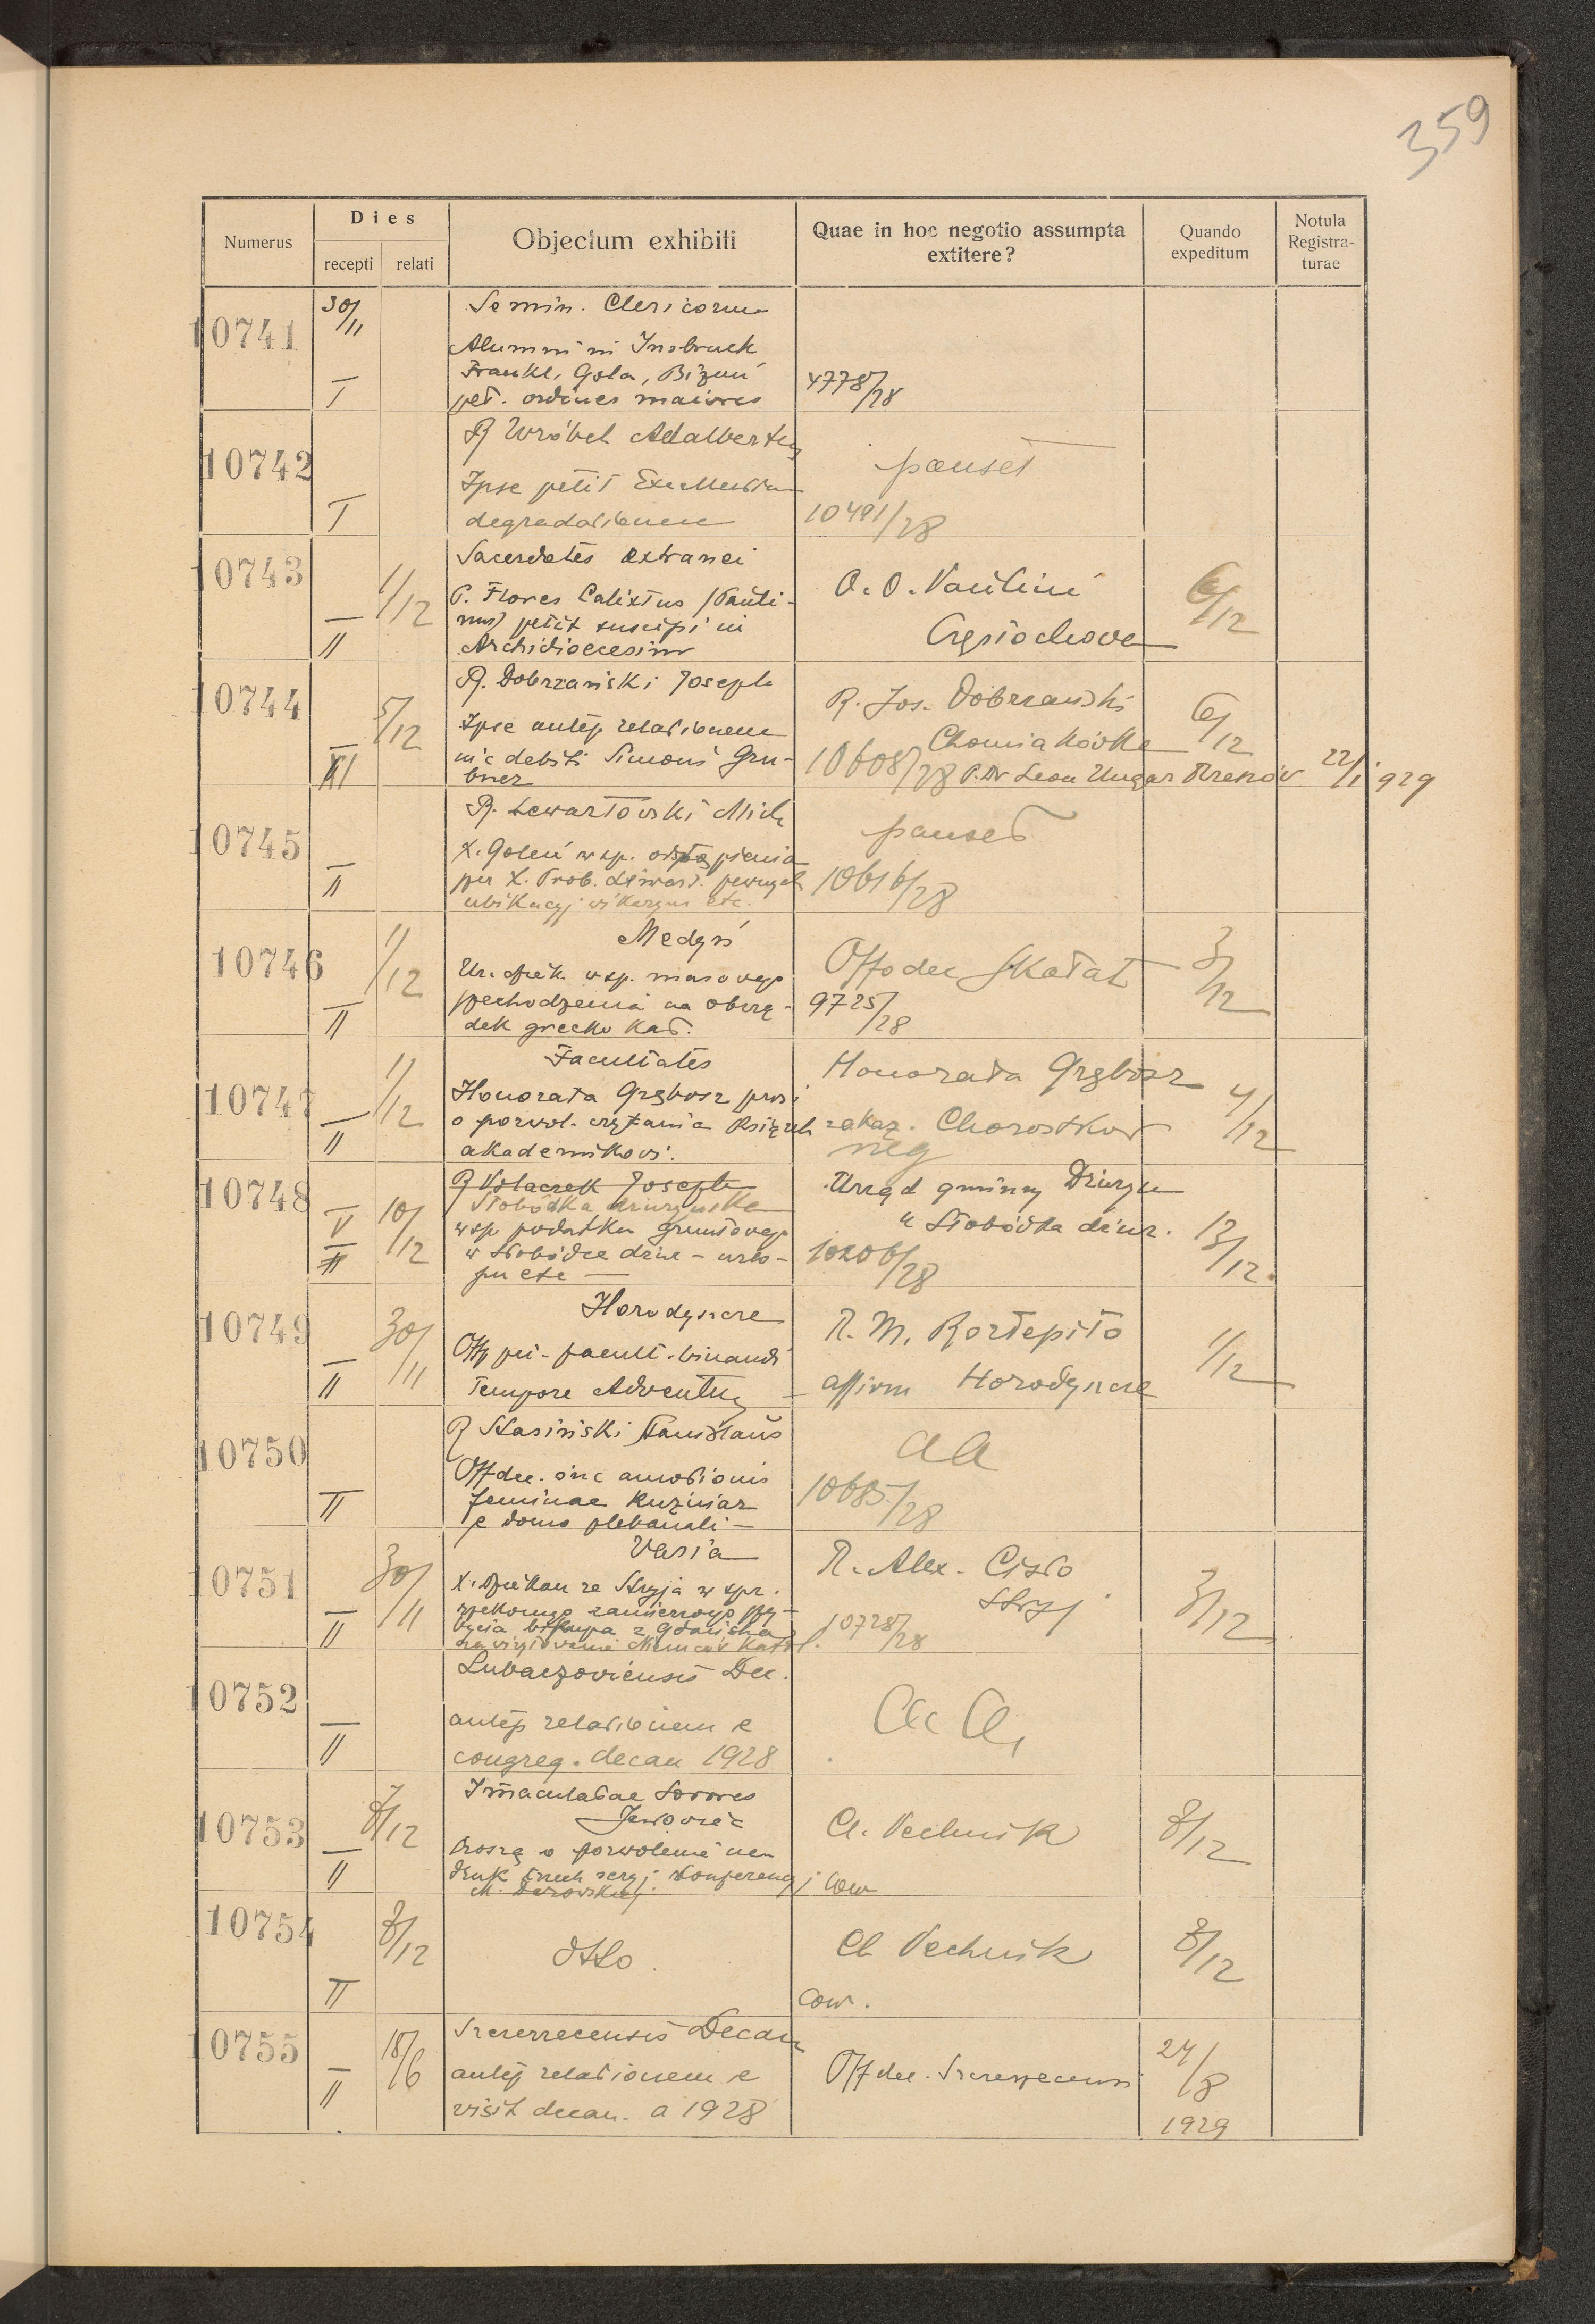 359
Numerus
Dies
recepti
relati
Objectum exhibiti
Quae in hoc negotio assumpta
extitere?
Quando
expeditum
Notula
Registra-
turae
10741
30/11
I
Semin. Clericorum
Alumni in Insbruck
Frankl, Gola, Bizuń
pet. ordines maiores
4778/28
10742
I
R Wróbel Adalbertus
Ipse petit
degradationem
pauset
10491/28
10743
II
1/12
Sacerdotes extranei
P. Flores Calixtus (Pauli-
nus) petit suscipi in
Archidioecesim
O. O. Paulini
Częstochowa
6/12
10744
5/12
R. Dobrzański Joseph
Ipse antep relationem
inc debiti Simoni Gru-
bner
R. Jos. Dobrzański
Chomiakówka
10608/28 P. Dr Leon Ungar
6/12
22/I 929
10745
II
R. Lewartowski Mich
X. Goleń w sp. odstąpienia
per X. Prob. Lewart. pewnych
ubikacyj wikarym etc.
pauset
10616/28
10746
II
1/12
Medyń
Ur. dziek. w sp. masowego
przechodzenia na obrzą-
dek grecko kat.
Off dec Skałat
9725/28
3/12
10747
II
1/12
Facultates
Honorata Grzbosz prosi
o pozwol. czytania Książek zakaz.
akademikowi.
Honorata Grzbosz
Chorostków
neg
4/12
10748
V
II
10/12
R Wołaczek Joseph
Słobódka dżuryńska
w sp. podatku gruntowego
w Słobódce dżur - urlo-
pu etc -
Urząd gminny Dżuryn
" Słobódka dżur.
10206/28
13/12
10749
II
30/11
Horodyszcze
Off pei - facult. binandi
tempore Adventus
R. M. Roztepiło
affirm Horodyszcze
1/12
10750
II
R Stasiński Stanislaus
Off dec. inc amotionis
feminae Kuźniar
e domo plebanali -
aa
10685/28
10751
II
30/11
Varia
X. Dziekan ze Stryja w spr.
rzekomego zamierzonego przy-
bycia biskupa z Gdańska
na wizytowanie Niemców Katol.
R. Alex. Cisło
Stryj
10728/28
3/12
10752
II
Lubaczoviensis Dec.
antep relationem e
congreg. decan 1928
aa
10753
II
7/12
Imaculatae Sorores
Jazłowiec
Proszą o pozwolenie na
druk trzech seryj. Konferencyj
M. Darowskiej
Cl. Pechnik
Cow
8/12
10754
II
8/12
dtto.
Cl Pechnik
Cow.
8/12
10755
II
18/6
Szczerzecensis Decan
antep relationem e
visit decan. a 1928
Off dec. Szczerzecensi
24/8
1929